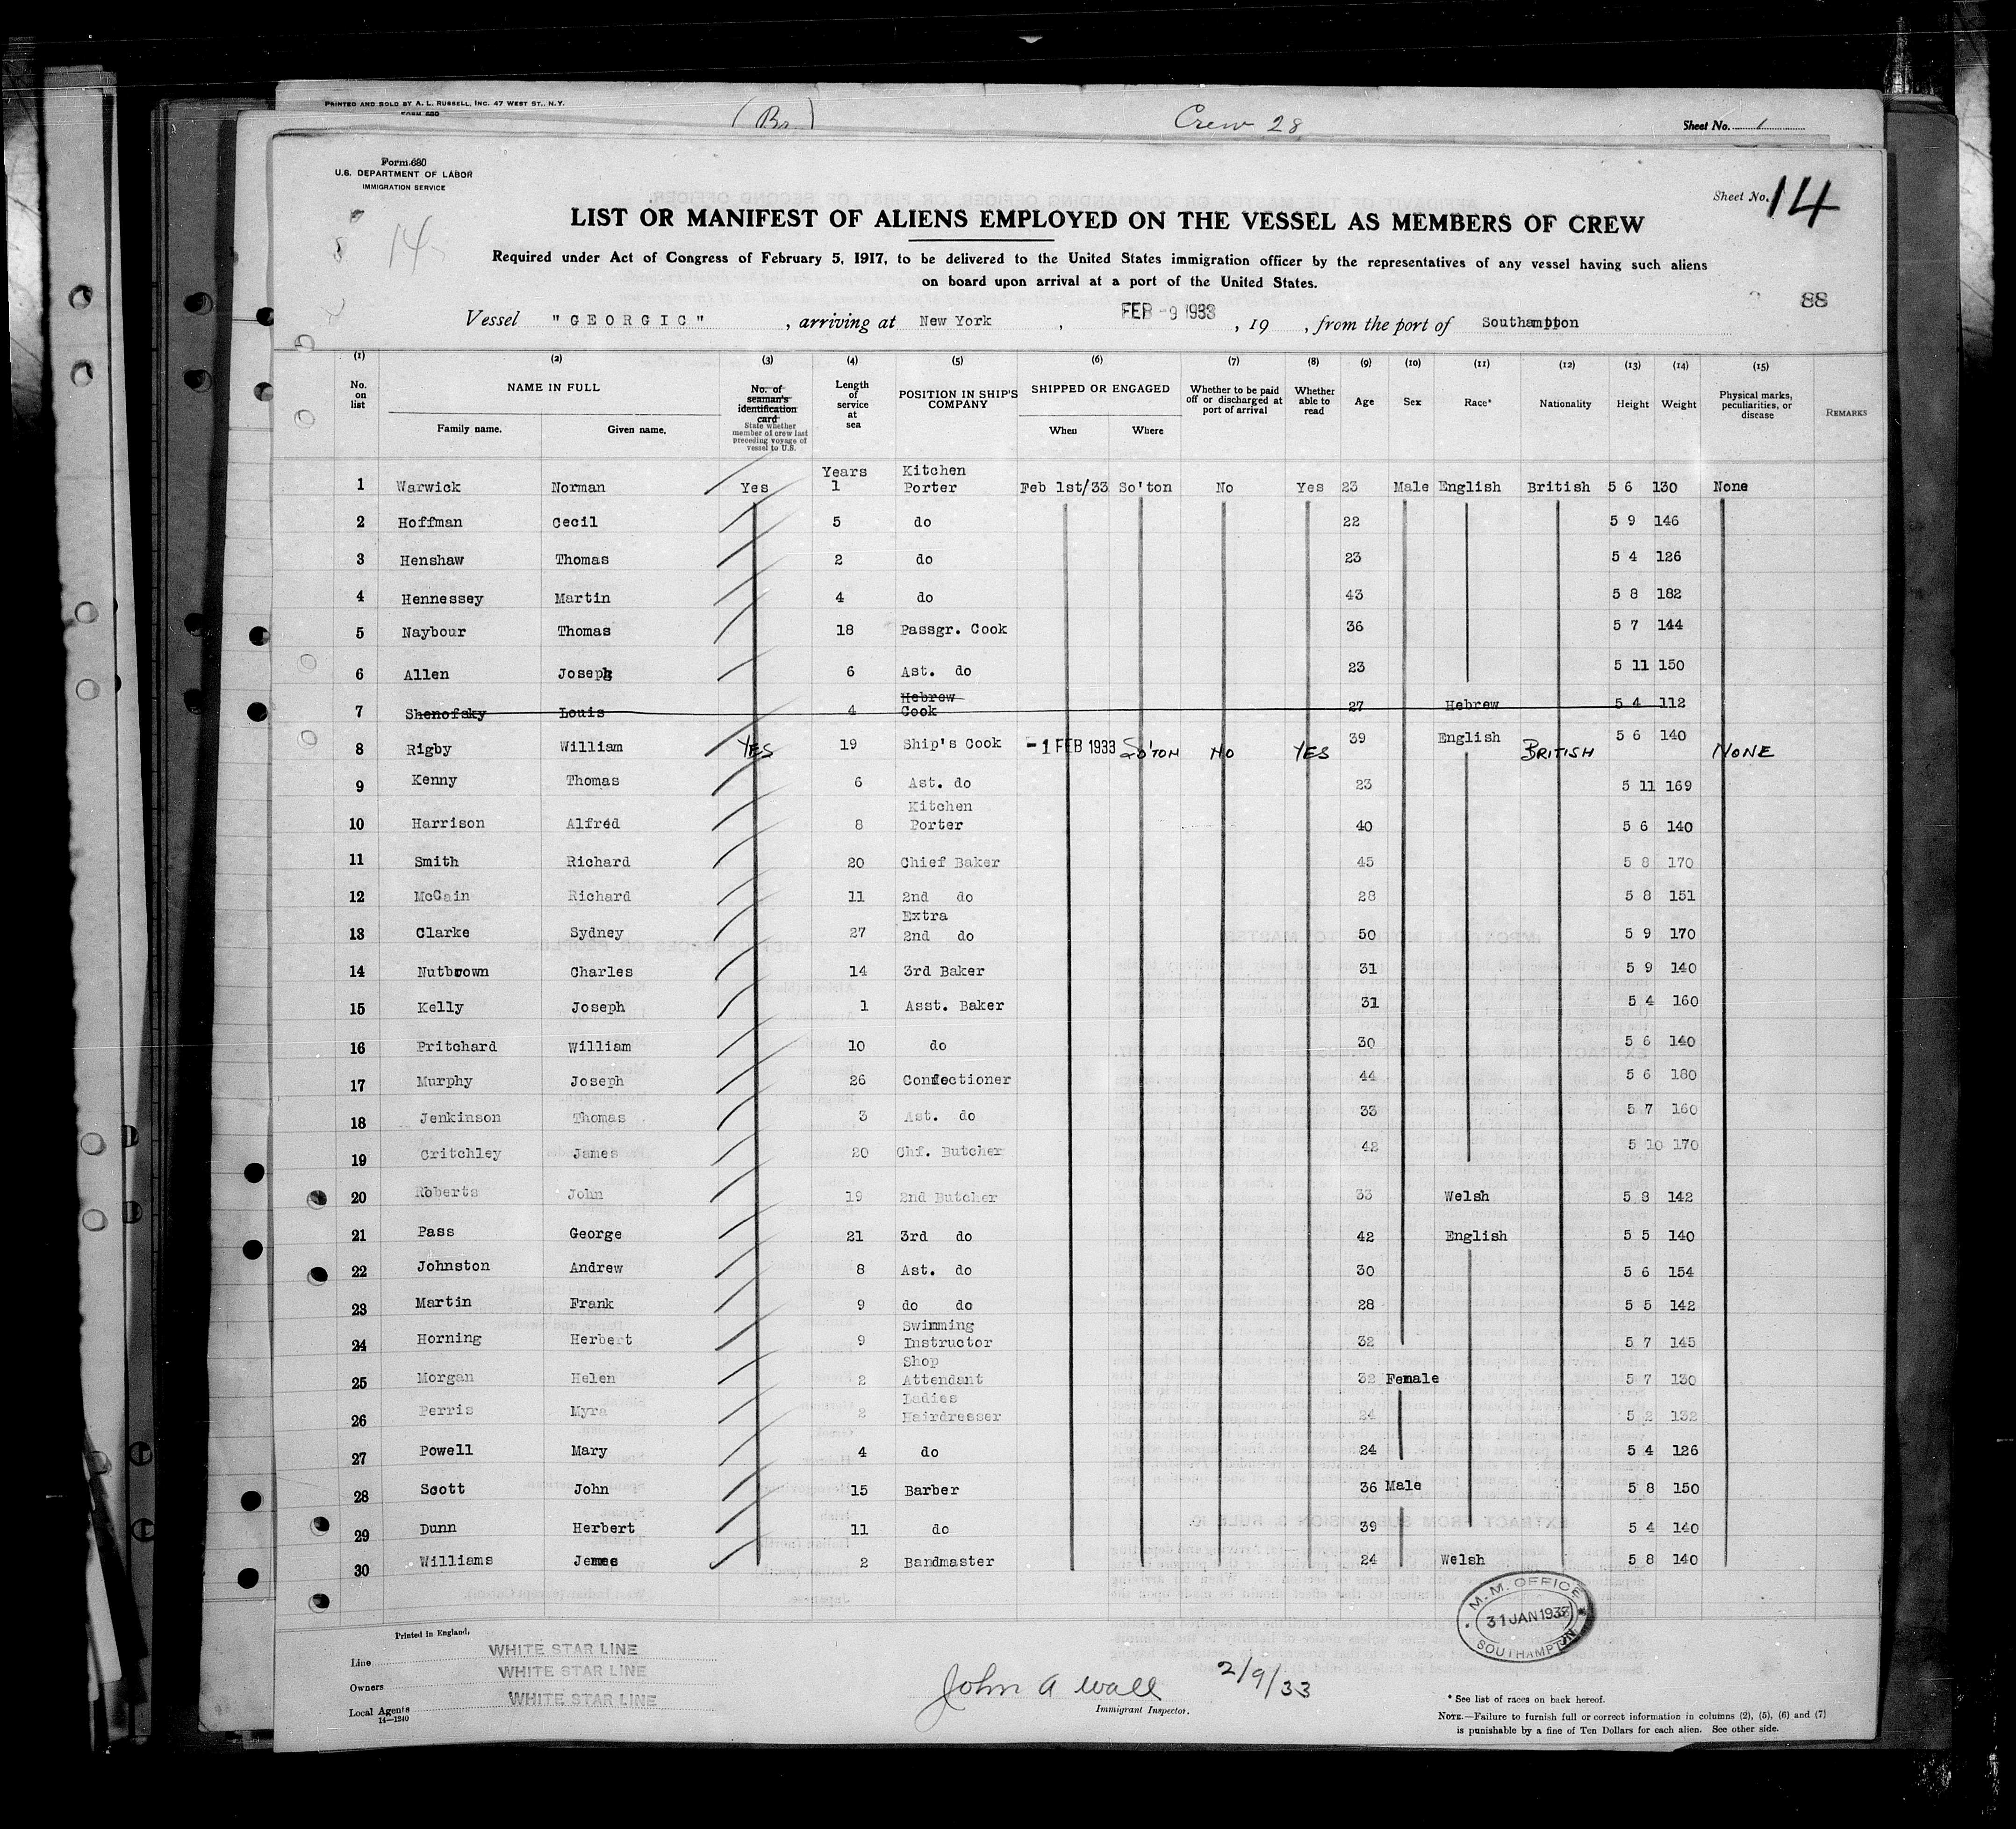 PRINTED AND SOLD BY A. L. RUSSELL, INC. 47 WEST ST., N.Y.
FORM 680
(Br)
Crew 28
Sheet No. 1
Form 680
U.S. DEPARTMENT OF LABOR
IMMIGRATION SERVICE
14
Sheet No. 14
LIST OR MANIFEST OF ALIENS EMPLOYED ON THE VESSEL AS MEMBERS OF CREW
Required under Act of Congress of February 5, 1917, to be delivered to the United States immigration officer by the representatives of any vessel having such aliens
on board upon arrival at a port of the United States.
88
Vessel "GEORGIC", arriving at New York, FEB -9 1933, 19 , from the port of Southampton
(1) (2) (3) (4) (5) (6) (7) (8) (9) (10) (11) (12) (13) (14) (15)
No. on list
NAME IN FULL
Family name. Given name.
No. of seaman's identification card
State whether member of crew last preceding voyage of vessel to U.S.
Length of service at sea
POSITION IN SHIP'S COMPANY
SHIPPED OR ENGAGED
When Where
Whether to be paid off or discharged at port of arrival
Whether able to read
Age
Sex
Race*
Nationality
Height
Weight
Physical marks, peculiarities, or disease
REMARKS
Years
1 Warwick Norman Yes 1 Kitchen Porter Feb 1st/33 So'ton No Yes 23 Male English British 5 6 130 None
2 Hoffman Cecil 5 do 22 5 9 146
3 Henshaw Thomas 2 do 23 5 4 126
4 Hennessey Martin 4 do 43 5 8 182
5 Naybour Thomas 18 Passgr. Cook 36 5 7 144
6 Allen Joseph 6 Ast. do 23 5 11 150
7 Shenofsky Louis 4 Hebrew Cook 27 Hebrew 5 4 112
8 Rigby William YES 19 Ship's Cook -1 FEB 1933 SO'TON NO YES 39 English BRITISH 5 6 140 NONE
9 Kenny Thomas 6 Ast. do 23 5 11 169
10 Harrison Alfred 8 Kitchen Porter 40 5 6 140
11 Smith Richard 20 Chief Baker 45 5 8 170
12 McCain Richard 11 2nd do 28 5 8 151
13 Clarke Sydney 27 Extra 2nd do 50 5 9 170
14 Nutbrown Charles 14 3rd Baker 31 5 9 140
15 Kelly Joseph 1 Asst. Baker 31 5 4 160
16 Pritchard William 10 do 30 5 6 140
17 Murphy Joseph 26 Confectioner 44 5 6 180
18 Jenkinson Thomas 3 Ast. do 33 5 7 160
19 Critchley James 20 Chf. Butcher 42 5 10 170
20 Roberts John 19 2nd Butcher 33 Welsh 5 8 142
21 Pass George 21 3rd do 42 English 5 5 140
22 Johnston Andrew 8 Ast. do 30 5 6 154
23 Martin Frank 9 do do 28 5 5 142
24 Horning Herbert 9 Swimming Instructor 32 5 7 145
25 Morgan Helen 2 Shop Attendant 32 Female 5 7 130
26 Perris Myra 2 Ladies Hairdresser 24 5 2 132
27 Powell Mary 4 do 24 5 4 126
28 Scott John 15 Barber 36 Male 5 8 150
29 Dunn Herbert 11 do 39 5 4 140
30 Williams James 2 Bandmaster 24 Welsh 5 8 140
M.M. OFFICE
31 JAN 1933
SOUTHAMPTON
Printed in England.
Line WHITE STAR LINE
Owners WHITE STAR LINE
Local Agents WHITE STAR LINE
14—1240
John A Wall 2/9/33
Immigrant Inspector.
* See list of races on back hereof.
NOTE.—Failure to furnish full or correct information in columns (2), (5), (6) and (7)
is punishable by a fine of Ten Dollars for each alien. See other side.